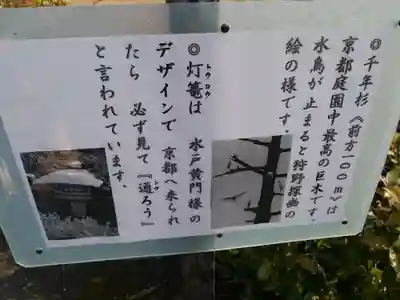 ◎千年杉《前方一〇〇m》は
京都庭園中最高の巨木です。
水鳥が止まると狩野探幽の
絵の様です。
◎灯篭は 水戸黄門様の
トウロウ
デザインで 京都へ来られ
たら 必ず見て『通ろう』
と言われています。